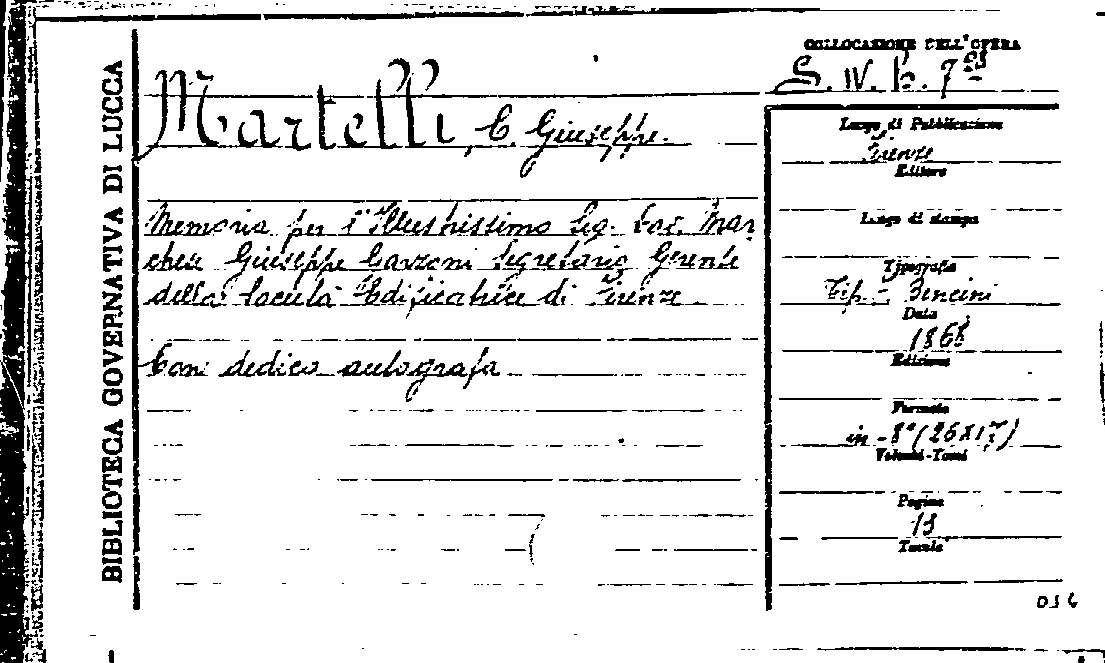 BIBLIOTECA GOVERNATIVA DI LUCCA
COLLOCAZIONE DELL'OPERA
Martelli, C. Giuseppe.
Luogo di Pubblicazione
Firenze
Editore
Memoria per l'Illustrissimo Sig. Cav. Mar
chese Giuseppe Garzoni Segretario Gerente
della Società Edificatrice di Firenze
Con dedica autografa
Luogo di stampa
Tipografia
Tip. Bencini
Data
1868
Edizione
Formato
in-8° (26x17)
Volumi-Tomi
Pagine
Tavole